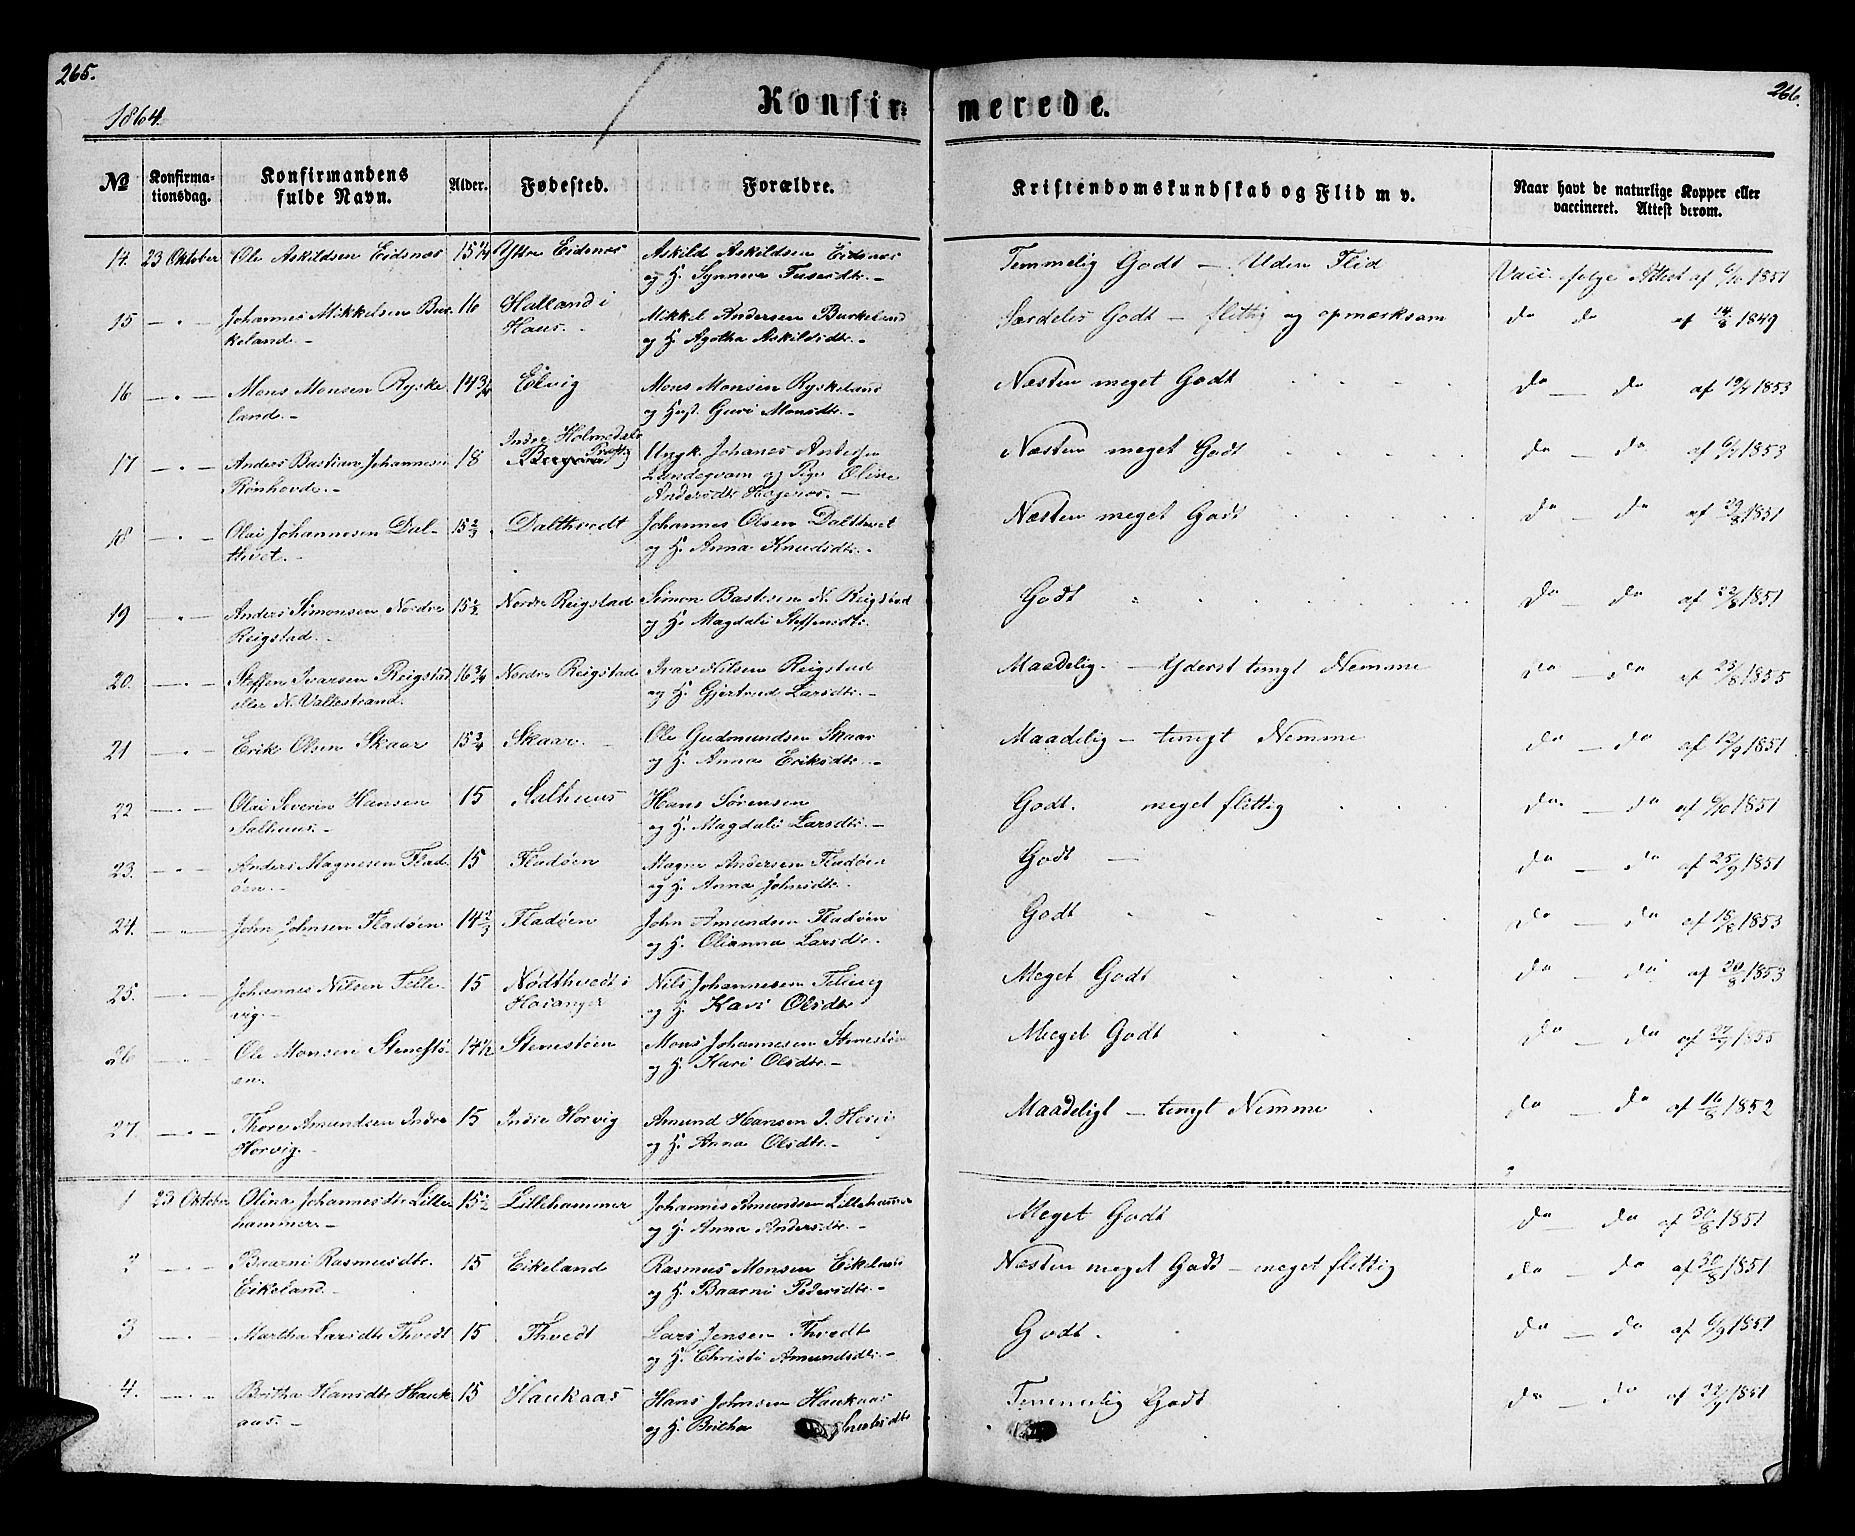 265.
266.
1864.
Konfirmerede.
No
Konfirma-
tionsdag.
Konfirmandens
fulde Navn.
Alder.
Fødested.
Forældre.
Kristendomskundskab og Flid m v.
Naar havt de naturlige Kopper eller
vaccineret. Attest derom.
14. 23 Oktober Ole Askildsen Eidsnæs 15 1/4 Ytre Eidsnæs Askild Askildsen Eidsnes Temmelig Godt — Uden Flid Vacc. følge Attest af 6/10 1851
og H. Synneve
15 — " — Johannes Mikkelsen Bur- 16 Halland i Mikkel Andersen Burkeland Særdeles Godt — flittig og opmærksom do do af 14/8 1849
keland. — Haus. og H. Agatha Askildsdtr. —
16 — " — Mons Monsen Ryske 14 3/4 Eelvig Mons Monsen Ryskeland Næsten meget Godt do — do af 19/7 1853
land. — og Hust. Guri Monsdtr. —
17 — " — Anders Bastian Johannesen 18 Indre Holmedals Ungk. Johanes Andersen Næsten meget Godt do — do af 1853
Rönhovde. — Præstg Lundegvam og Pige Oline
Andersdtr
18 — " — Olai Johannesen Dal- 15 2/3 Dalthvedt Johannes Olsen Dalthvet Næsten meget Godt do — do af 29/8 1851
thvet. — og H. Anna Knudsdtr. —
19 — " — Anders Simonsen Nordre 15 1/2 Nordre Reigstad Simon Bastesen N. Reigstad Godt do — do af 22/8 1851
Reigstad. og H. Magdali Steffensdtr.
20. — " — Steffen Ivarsen Reigstad 16 3/4 Nordre Reigstad Ivar Nilsen Reigstad Maadelig. — Yderst tungt Nemme do — do af 23/8 1855
eller N. Vallestrand. og H. Gjertrud Larsdtr. —
21 " Erik Olsen Skaar 15 3/4 Skaar. Ole Gudmundsen Skaar Maadelig — tungt Nemme do — do af 12/9 1851
og H. Anna Eriksdtr. —
22 — " — Olai Severin Hansen 15 Salhuus Hans Sörensen Godt. meget flittig do. — do af 6/10 1851
Salhuus. — og H. Magdali Larsdtr. —
23. — " — Anders Magnesen Flad- 15 Fladöen Magne Andersen Fladöen Godt — do — do af 25/9 1851
öen. — og H. Anna Johnsdtr.
24. — " — John Johnsen Fladöen 14 2/3 Fladöen John Amundsen Fladöen Godt do — do af 18/8 1853
og H. Olianna Larsdtr.
25. — " — Johannes Nilsen Telle- 15 Nödthvedt i Nils Johannesen Meget Godt do — do af 20/8 1853
vig. — og H. Kari Olsdtr
26 — " — Ole Monsen Stenestö- 14 1/2 Stenestöen Mons Johannesen Stenestöen Meget Godt do — do af 1855
en. og H. Kari Olsdtr. —
27. — " — Thore Amundsen Indre 15 Indre Horvig Amund Hansen I. Horvig Maadeligt — tungt Nemme do — do af 16/8 1852
Horvig. — og H. Anna Olsdtr. —
1 23 Oktober Olina Johannesdtr Lille- 15 1/2 Lillehammer Johannes Amundsen Lillehammer Meget Godt do — do af 30/8 1851
hammer. — og H. Anna Andersdtr. —
2 — " — Baarni Rasmusdtr. 15 Eikeland Rasmus Monsen Eikeland Næsten meget Godt — meget flittig do — do af 30/8 1851
Eikeland. — og H. Baarni Pedersdtr. —
3 — " — Martha Larsdtr Thvedt 15 Thvedt Lars Jensen Thvedt Godt. do — do af 6/9 1851
og H. Christi Amundsdtr. —
4. — " — Britha Hansdtr Hauk- 15 Haukaas Hans Johnsen Haukaas Temmelig Godt do — do af 1851
aas. — og H. Britha Knudsdtr